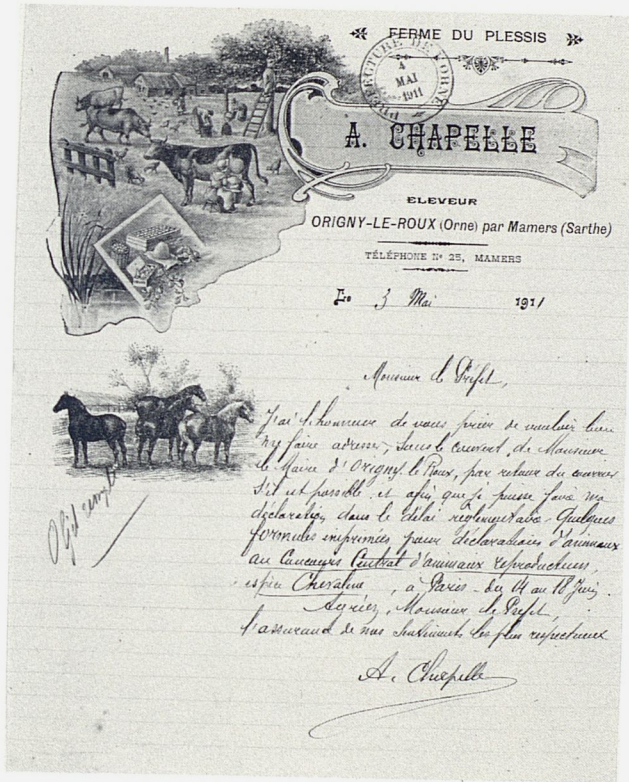 FERME DU PLESSIS
PRÉFECTURE DE L'ORNE
4
MAI
1911
A. CHAPELLE
ELEVEUR
ORIGNY-LE-ROUX (Orne) par Mamers (Sarthe)
TÉLÉPHONE N° 25, MAMERS
Le 3 Mai 1911
Monsieur le Préfet,
J'ai l'honneur de vous prier de vouloir bien
m'y faire adresser, sous le couvert, de Monsieur
le Maire d'Origny le Roux, par retour du courrier
s'il est possible et afin que je puisse faire ma
déclaration dans le délai réglementaire. Quelques
formules imprimées pour déclarations d'animaux
au Concours Central d'animaux reproducteurs,
espèce Chevaline, à Paris - du 14 au 18 Juin.
Agréez, Monsieur le Préfet,
l'assurance de mes sentiments les plus respectueux
A. Chapelle